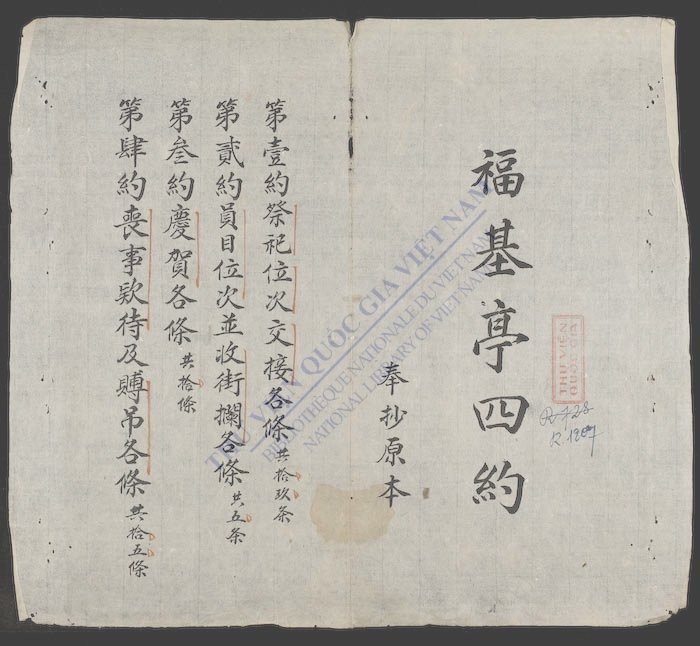 福基亭四約
奉抄原本
第壹約祭祀位次交接各條共拾玖条
第貳約員目位次並收街攔各條共五条
第叁約慶賀各條共拾條
第肆約喪事欵待及賻吊各條共拾五條
THƯ VIỆN QUỐC GIA VIỆT NAM
BIBLIOTHÈQUE NATIONALE DU VIETNAM
NATIONAL LIBRARY OF VIETNAM
THƯ VIỆN
QUỐC GIA